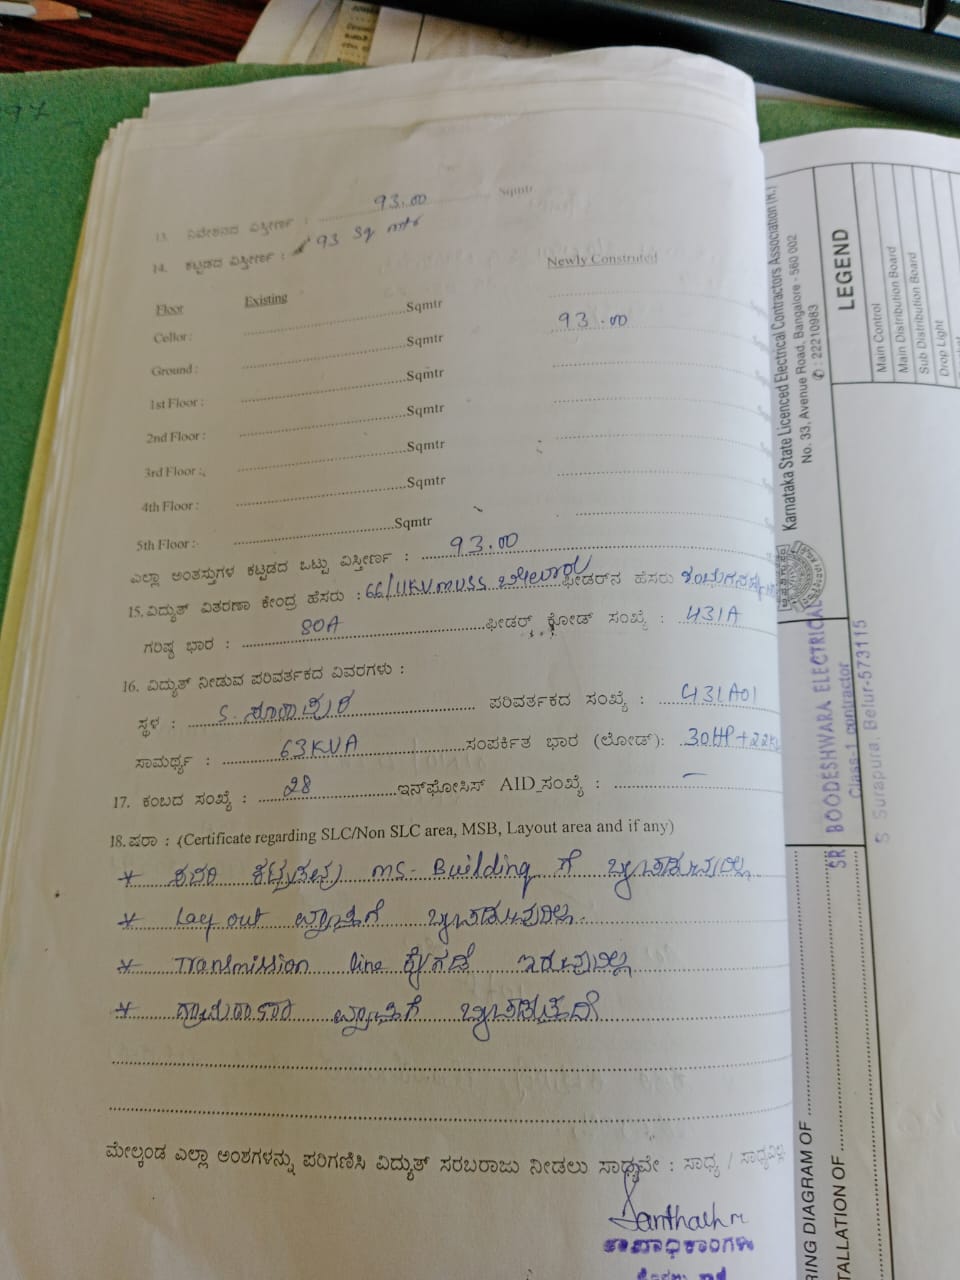 97
13. ನಿವೇಶನದ ವಿಸ್ತೀರ್ಣ : 93.00 Sqmtr
14. ಕಟ್ಟಡದ ವಿಸ್ತೀರ್ಣ : 93 Sq mtr
Floor Existing Newly Construted
Cellor : Sqmtr
Ground : Sqmtr 93.00
1st Floor : Sqmtr
2nd Floor : Sqmtr
3rd Floor : Sqmtr
4th Floor : Sqmtr
5th Floor : Sqmtr
ಎಲ್ಲಾ ಅಂತಸ್ತುಗಳ ಕಟ್ಟಡದ ಒಟ್ಟು ವಿಸ್ತೀರ್ಣ : 93.00
15. ವಿದ್ಯುತ್ ವಿತರಣಾ ಕೇಂದ್ರ ಹೆಸರು : 66/11KV MUSS ಬೇಲೂರು ಫೀಡರ್‌ನ ಹೆಸರು
ಗರಿಷ್ಠ ಭಾರ : 80A ಫೀಡರ್ ಕೋಡ್ ಸಂಖ್ಯೆ : 431A
16. ವಿದ್ಯುತ್ ನೀಡುವ ಪರಿವರ್ತಕದ ವಿವರಗಳು :
ಸ್ಥಳ : S. ಸೂರಾಪುರ ಪರಿವರ್ತಕದ ಸಂಖ್ಯೆ : 431A01
ಸಾಮರ್ಥ್ಯ : 63KVA ಸಂಪರ್ಕಿತ ಭಾರ (ಲೋಡ್): 30HP+22K
17. ಕಂಬದ ಸಂಖ್ಯೆ : 28 ಇನ್‌ಫೋಸಿಸ್ AID ಸಂಖ್ಯೆ : —
18. ಷರಾ : (Certificate regarding SLC/Non SLC area, MSB, Layout area and if any)
* ಸದರಿ ಕಟ್ಟಡವು MS-Building ಗೆ ಒಳಪಡುವುದಿಲ್ಲ.
* Layout ವ್ಯಾಪ್ತಿಗೆ ಒಳಪಡುವುದಿಲ್ಲ.
* Transmission line ಕೆಳಗಡೆ ಇರುವುದಿಲ್ಲ
* ಗ್ರಾಮಠಾಣಾ ವ್ಯಾಪ್ತಿಗೆ ಒಳಪಡುತ್ತದೆ
ಮೇಲ್ಕಂಡ ಎಲ್ಲಾ ಅಂಶಗಳನ್ನು ಪರಿಗಣಿಸಿ ವಿದ್ಯುತ್ ಸರಬರಾಜು ನೀಡಲು ಸಾಧ್ಯವೇ : ಸಾಧ್ಯ / ಸಾಧ್ಯವಿಲ್ಲ
Karnataka State Licenced Electrical Contractors Association (R.)
No. 33, Avenue Road, Bangalore - 560 002
✆ : 22210983
LEGEND
Main Control
Main Distribution Board
Sub Distribution Board
Drop Light
SR BOODESHWARA ELECTRICAL
Class-1 contractor
S Surapura, Belur-573115
RING DIAGRAM OF
TALLATION OF